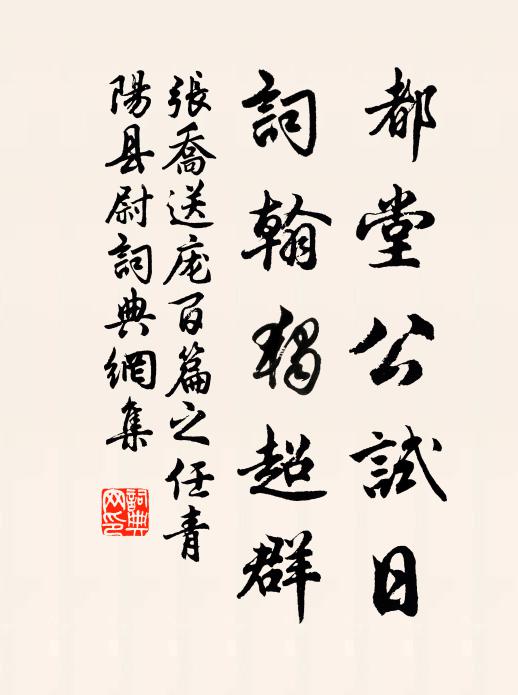 都堂公試日
詞翰獨超群
張喬送庞百篇之任青
陽县尉詞典網集
詞典网印